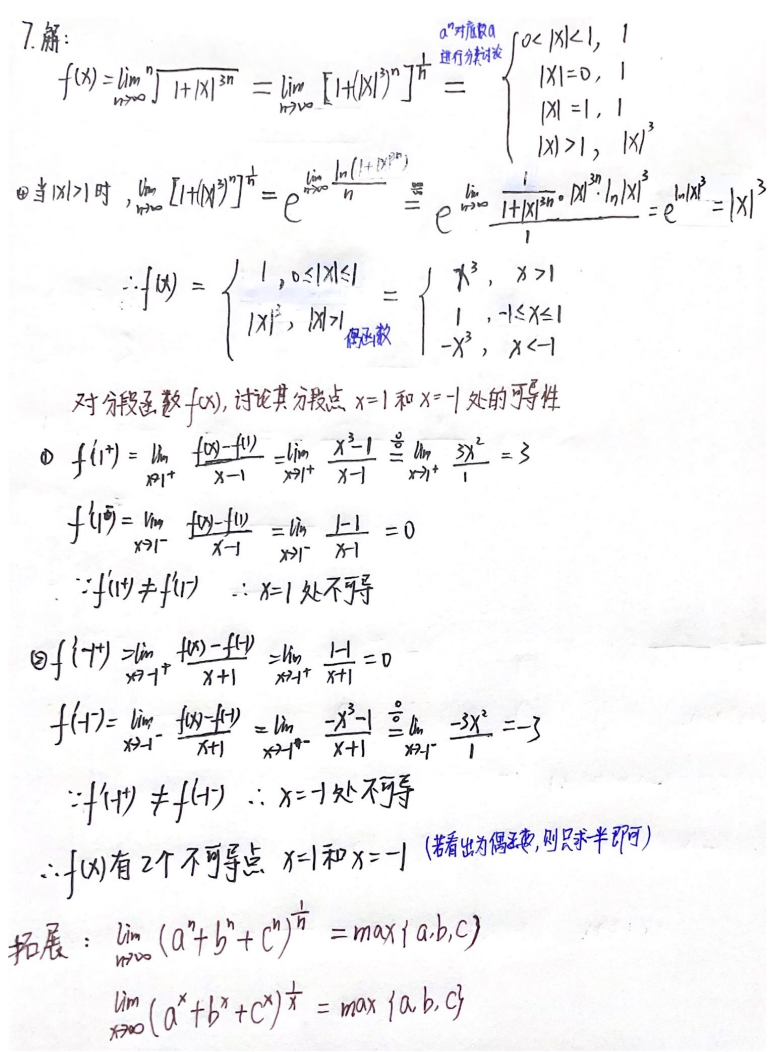 7.解:
f(x)=lim_{n→∞} ⁿ√(1+|x|^{3n}) = lim_{n→∞} [1+(|x|³)ⁿ]^{1/n} = { 0<|x|<1, 1
aⁿ对底数a
进行分类讨论
|x|=0, 1
|x|=1, 1
|x|>1, |x|³
⊕当|x|>1时, lim_{n→∞} [1+(|x|³)ⁿ]^{1/n} = e^{lim_{n→∞} ln(1+|x|^{3n})/n} = e^{lim_{n→∞} (1/(1+|x|^{3n})·|x|^{3n}·ln|x|³)/1} = e^{ln|x|³} = |x|³
∴f(x) = { 1, 0≤|x|≤1 ; |x|³, |x|>1 = { x³, x>1 ; 1, -1≤x≤1 ; -x³, x<-1
偶函数
对分段函数f(x),讨论其分段点 x=1和x=-1处的可导性
① f'(1⁺) = lim_{x→1⁺} (f(x)-f(1))/(x-1) = lim_{x→1⁺} (x³-1)/(x-1) =^{0/0} lim_{x→1⁺} 3x²/1 = 3
f'(1⁻) = lim_{x→1⁻} (f(x)-f(1))/(x-1) = lim_{x→1⁻} (1-1)/(x-1) = 0
∵f'(1⁺)≠f'(1⁻) ∴x=1处不可导
② f'(-1⁺) = lim_{x→-1⁺} (f(x)-f(-1))/(x+1) = lim_{x→-1⁺} (1-1)/(x+1) = 0
f'(-1⁻) = lim_{x→-1⁻} (f(x)-f(-1))/(x+1) = lim_{x→-1⁻} (-x³-1)/(x+1) =^{0/0} lim_{x→-1⁻} -3x²/1 = -3
∵f'(-1⁺) ≠ f'(-1⁻) ∴x=-1处不可导
∴f(x)有2个不可导点 x=1和x=-1 (若看出为偶函数,则只求一半即可)
拓展: lim_{n→∞} (aⁿ+bⁿ+cⁿ)^{1/n} = max{a,b,c}
lim_{x→∞} (aˣ+bˣ+cˣ)^{1/x} = max{a,b,c}